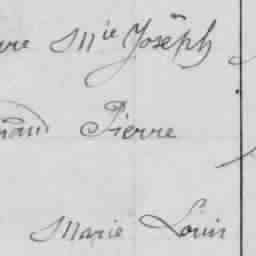 Mie Joseph
Pierre
Marie Louis